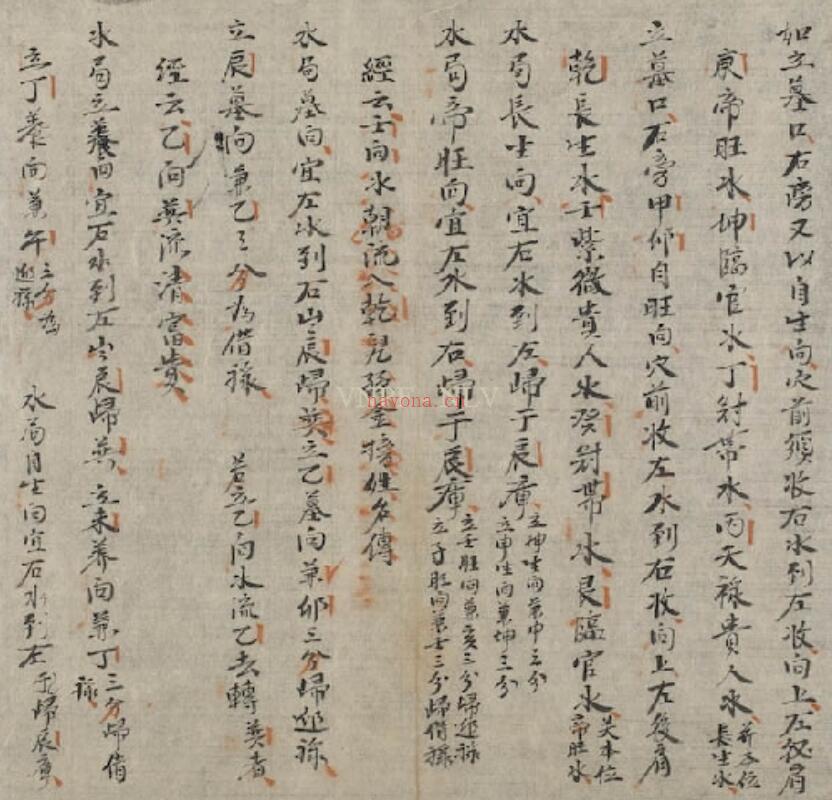 如立墓口右旁又以自生向穴前須收右水到左收向上左叔肩
庚帝旺水坤臨官水丁冠帶水丙天祿貴人水并本位長生水
立墓口右旁甲卯自旺向穴前收左水到右收向上左後肩
乾長生水壬紫微貴人水癸冠帶水艮臨官水关本位帝旺水
水局長生向宜右水到左歸于辰庫立坤生向兼申三分立申生向兼坤三分
水局帝旺向宜左水到右歸于辰庫立壬旺向兼亥三分歸迯祿立子旺向兼壬三分歸借祿
經云壬向水朝流入乾兒孫金榜姓名傳
水局墓向宜左水到右山辰歸巽立乙墓向兼卯三分歸迯祿
立辰墓向兼乙三分為借祿 若立乙向水流乙去轉巽者
經云乙向巽流清富貴
水局立養向宜右水到左山辰歸巽立未養向兼丁三分歸借祿
立丁養向兼午三分為迯祿 水局自生向宜右水到左歸辰庫
VNPF NLV
hayona.cn